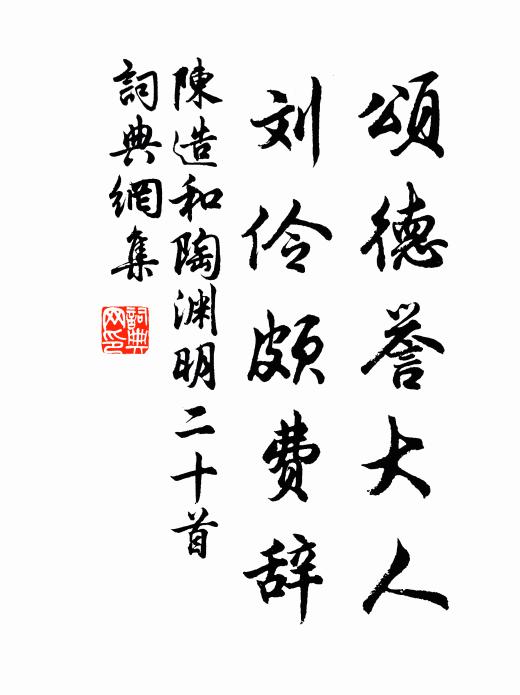 頌德誉大人
刘伶頗费辞
陳造和陶渊明二十首
詞典網集
詞典网印